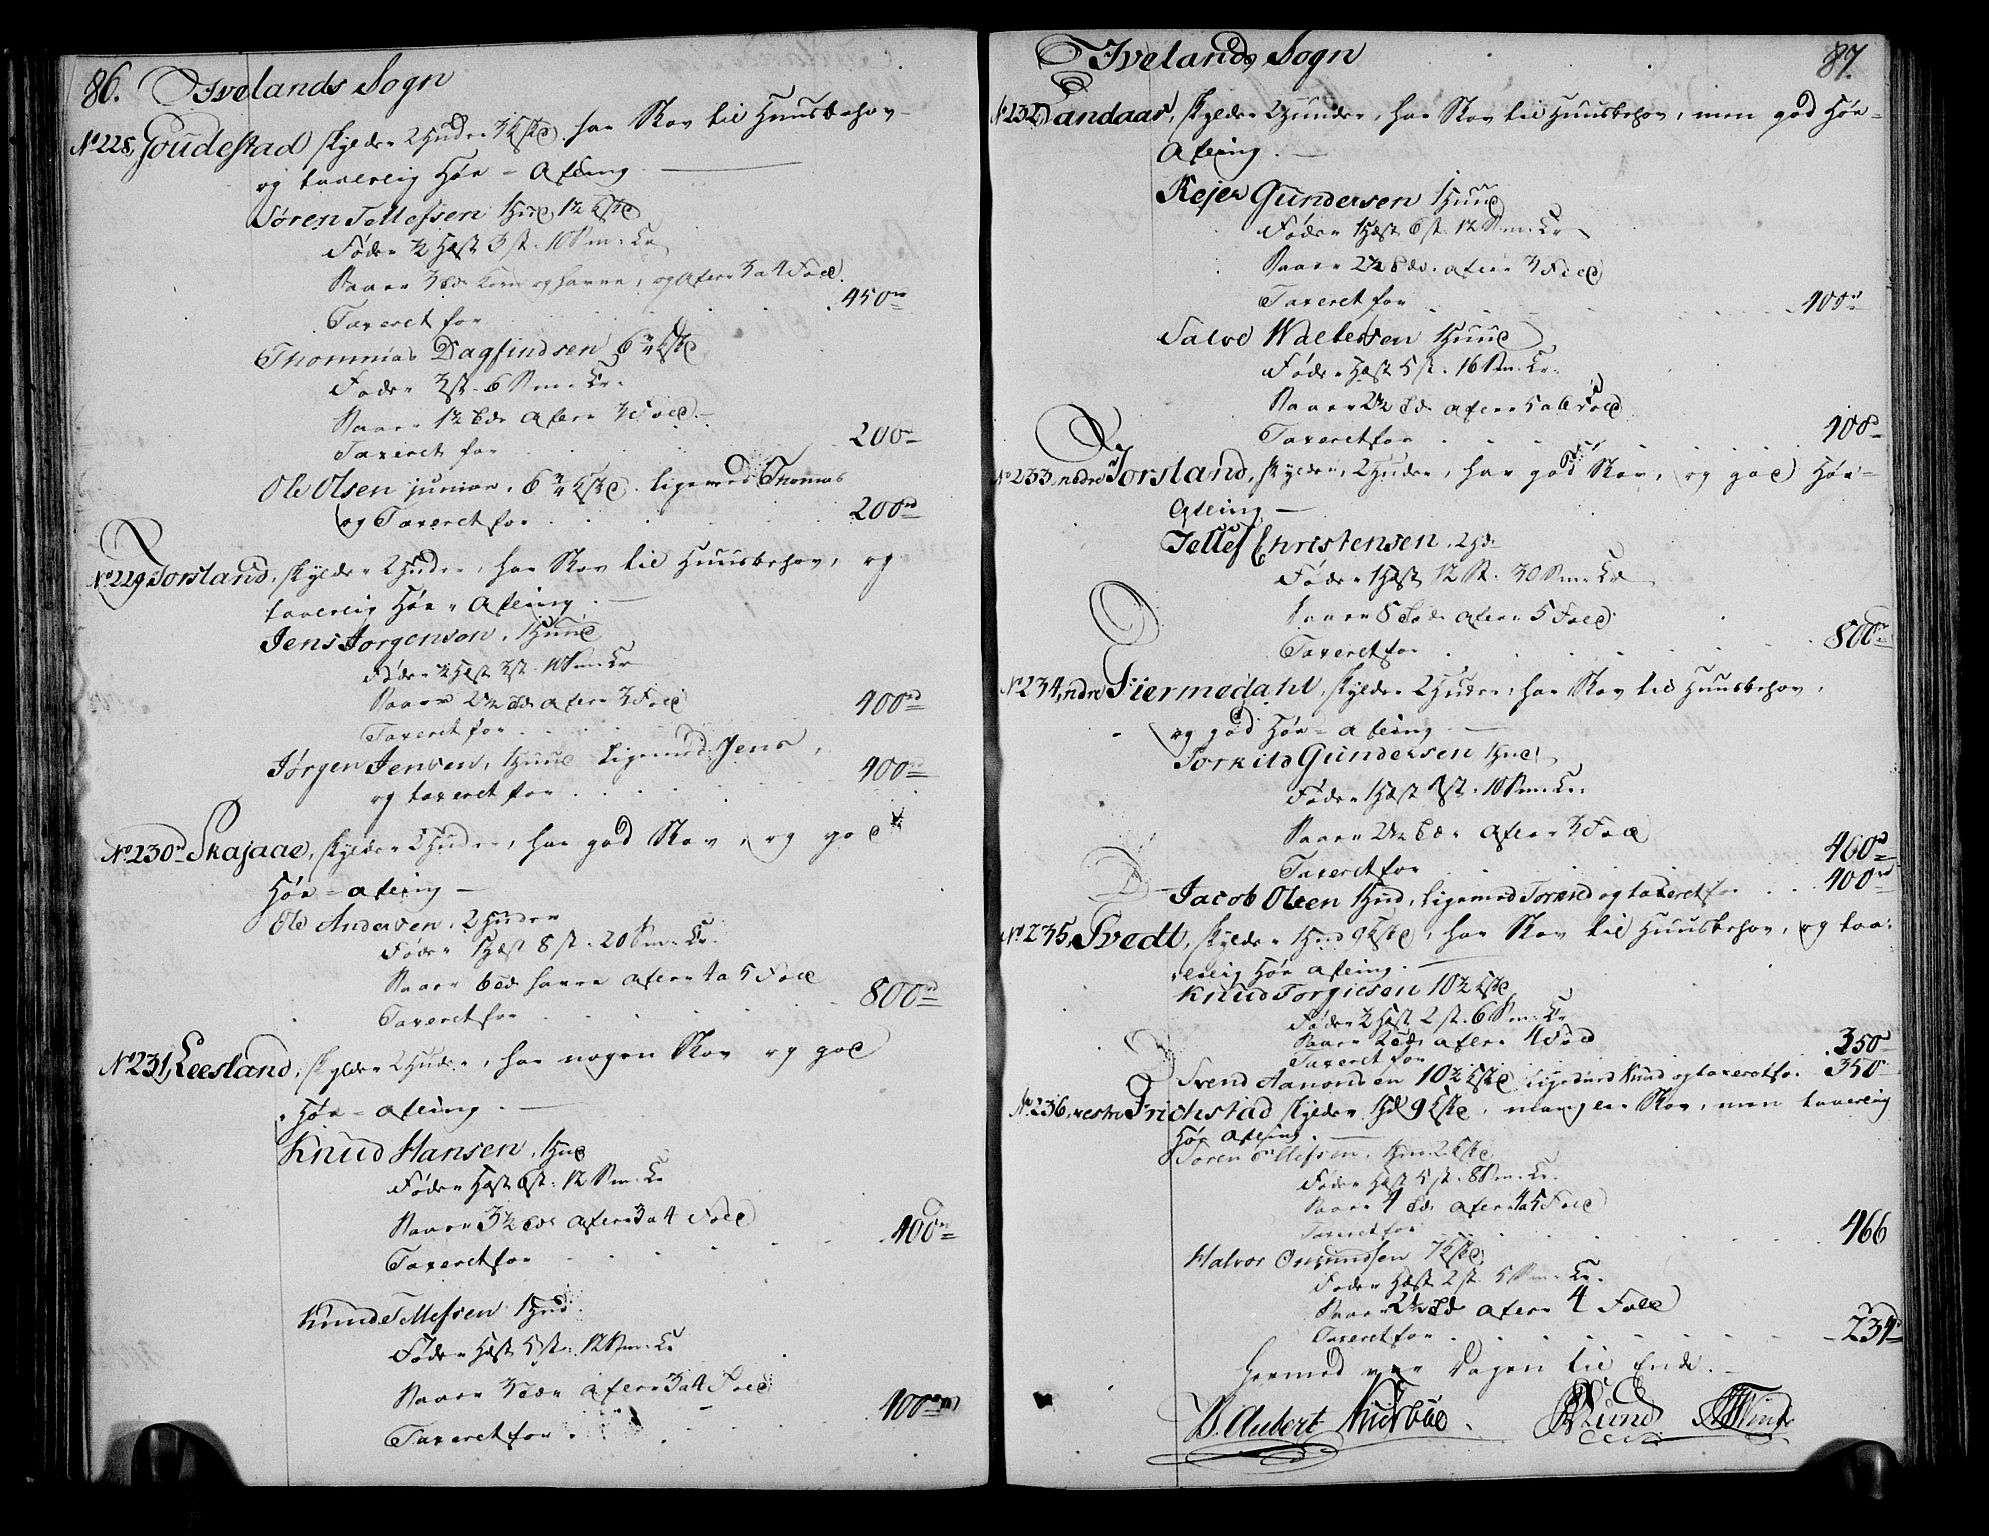 86. Ivelands Sogn
No 228, Goudestad skylder 2 Huder 3 Kske, har Skov til Huusbehov
og taalelig Høe-Afling.
Søren Tellefsen 1 Hud 1½ Kske
Føder ½ Hæst 3 st. 10 Smr. Cr.
Saaer 3 Tdr Korn og Havre, og Afler 3 a 4 Fold
Taxeret for . . . 450 rd
Thommas Dagfindsen 6¾ Kske
Føder 3 st. 6 Smr. Cr.
Saaer 1½ Tdr Afler 3 Fold.
Taxeret for . . . 200
Ole Olsen junior, 6¾ Kske. ligemed Thommas
og Taxeret for . . . 200 rd
No 229. Torsland, skylder 2 Huder, har Skov til Huusbehov, og
taalelig Høe-Afling.
Jens Jorgenson, 1 Hud
Føder ½ Hæst 3 st. 10 Smr. Cr
Saaer 2½ Tdr Afler 3 Fold
Taxeret for . . . 400 rd
Jørgen Jensen, 1 Hud ligemed Jens,
og taxeret for . . . 400 rd
No 230. Skajaae, skylder 2 Huder, har god Skov, og god
Høe-Afling
Ole Andersen, 2 Huder
Føder 1 Hæst 8 st. 20 Smr. Cr.
Saaer 6 Tdr Havre Afler 4 a 5 Fold
Taxeret for . . . 800 rd
No 231, Leesland, skylder 2 Huder, har nogen Skov og god
Høe-Afling.
Knud Hansen, 1 Hud
Føder Hæst 6 st. 12 Smr. Cr
Saaer 3½ Tdr Afler 3 a 4 Fold
Taxeret for . . . 400 rd
Knud Tellefsen 1 Hud
Føder Hæst 5 st. 12 Smr. Cr
Saaer 3 Tdr Afler 3 a 4 Fold
Taxeret for . . . 400 rd
Ivelands Sogn 87.
No 232 Landaas, skylder 2 Huuder, har Skov til Huusbehov, men god Høe-
Afling.
Rejer Gundersen 1 Huud
Føder 1 Hæst 6 st. 12 Smr. Cr
Saaer 2½ Tdr. Afler 3 Fold
Taxeret for . . . 400 rd
Salve Woltersen 1 Huud
Føder Hæst 5 st. 16 Smr. Cr.
Saaer 2½ Tdr Afler 5 a 6 Fold
Taxeret for . . . 400
No 233, nedre Torsland, skylder, 2 Huder, har god Skov, og god Høe-
Afling
Tellef Christensen, 2 Hdr
Føder 1 Hæst 12 St. 30 Smr. Cr
Saaer 8 Tdr Afler 5 Fold
Taxeret for . . . 800 rd
No 234, ndre Fiermedahl, skylder 2 Huder, har Skov til Huusbehov,
og god Høe-Afling.
Torkild Gundersen 1 Hud
Føder 1 Hæst st. 10 Smr. Cr.
Saaer 2½ Tdr Afler 3 Fold
Taxeret for . . . 400 rd
Jacob Olsen 1 Hud, ligemed Torkild og taxeret for . . . 400 rd
No 235, Tvedt, skylder 1 Hud 9 Kske, har Skov til Huusbehov, og taa-
lelig Høe Afling.
Knud Torgiesen 10½ Kske
Føder ½ Hæst 2 st. 6 Smr. Cr
Saaer 2 Tdr Afler 4 Fold
Taxeret for . . . 350
Svend Aanondsen 10½ Kske ligemed Knud og taxeret for 350
No 236, vestre Frichstad skylder 1 Hd 9 Kske, mangler Skov, men taalelig
Høe Afling.
Soren Tellefsen, 1 Hud 2 Kske
Føder Hæst 5 st. 8 Smr. Cr.
Saaer 4 Tdr Afler 4 a 5 Fold
Taxeret for . . . 466
Halvor Omundsen 7 Kske
Føder Hæst 2 st. 5 Smr. Cr.
Saaer 2½ Tdr Afler 4 Fold
Taxeret for . . . 234
Hermed var Dagen til Ende.
B. Aubert